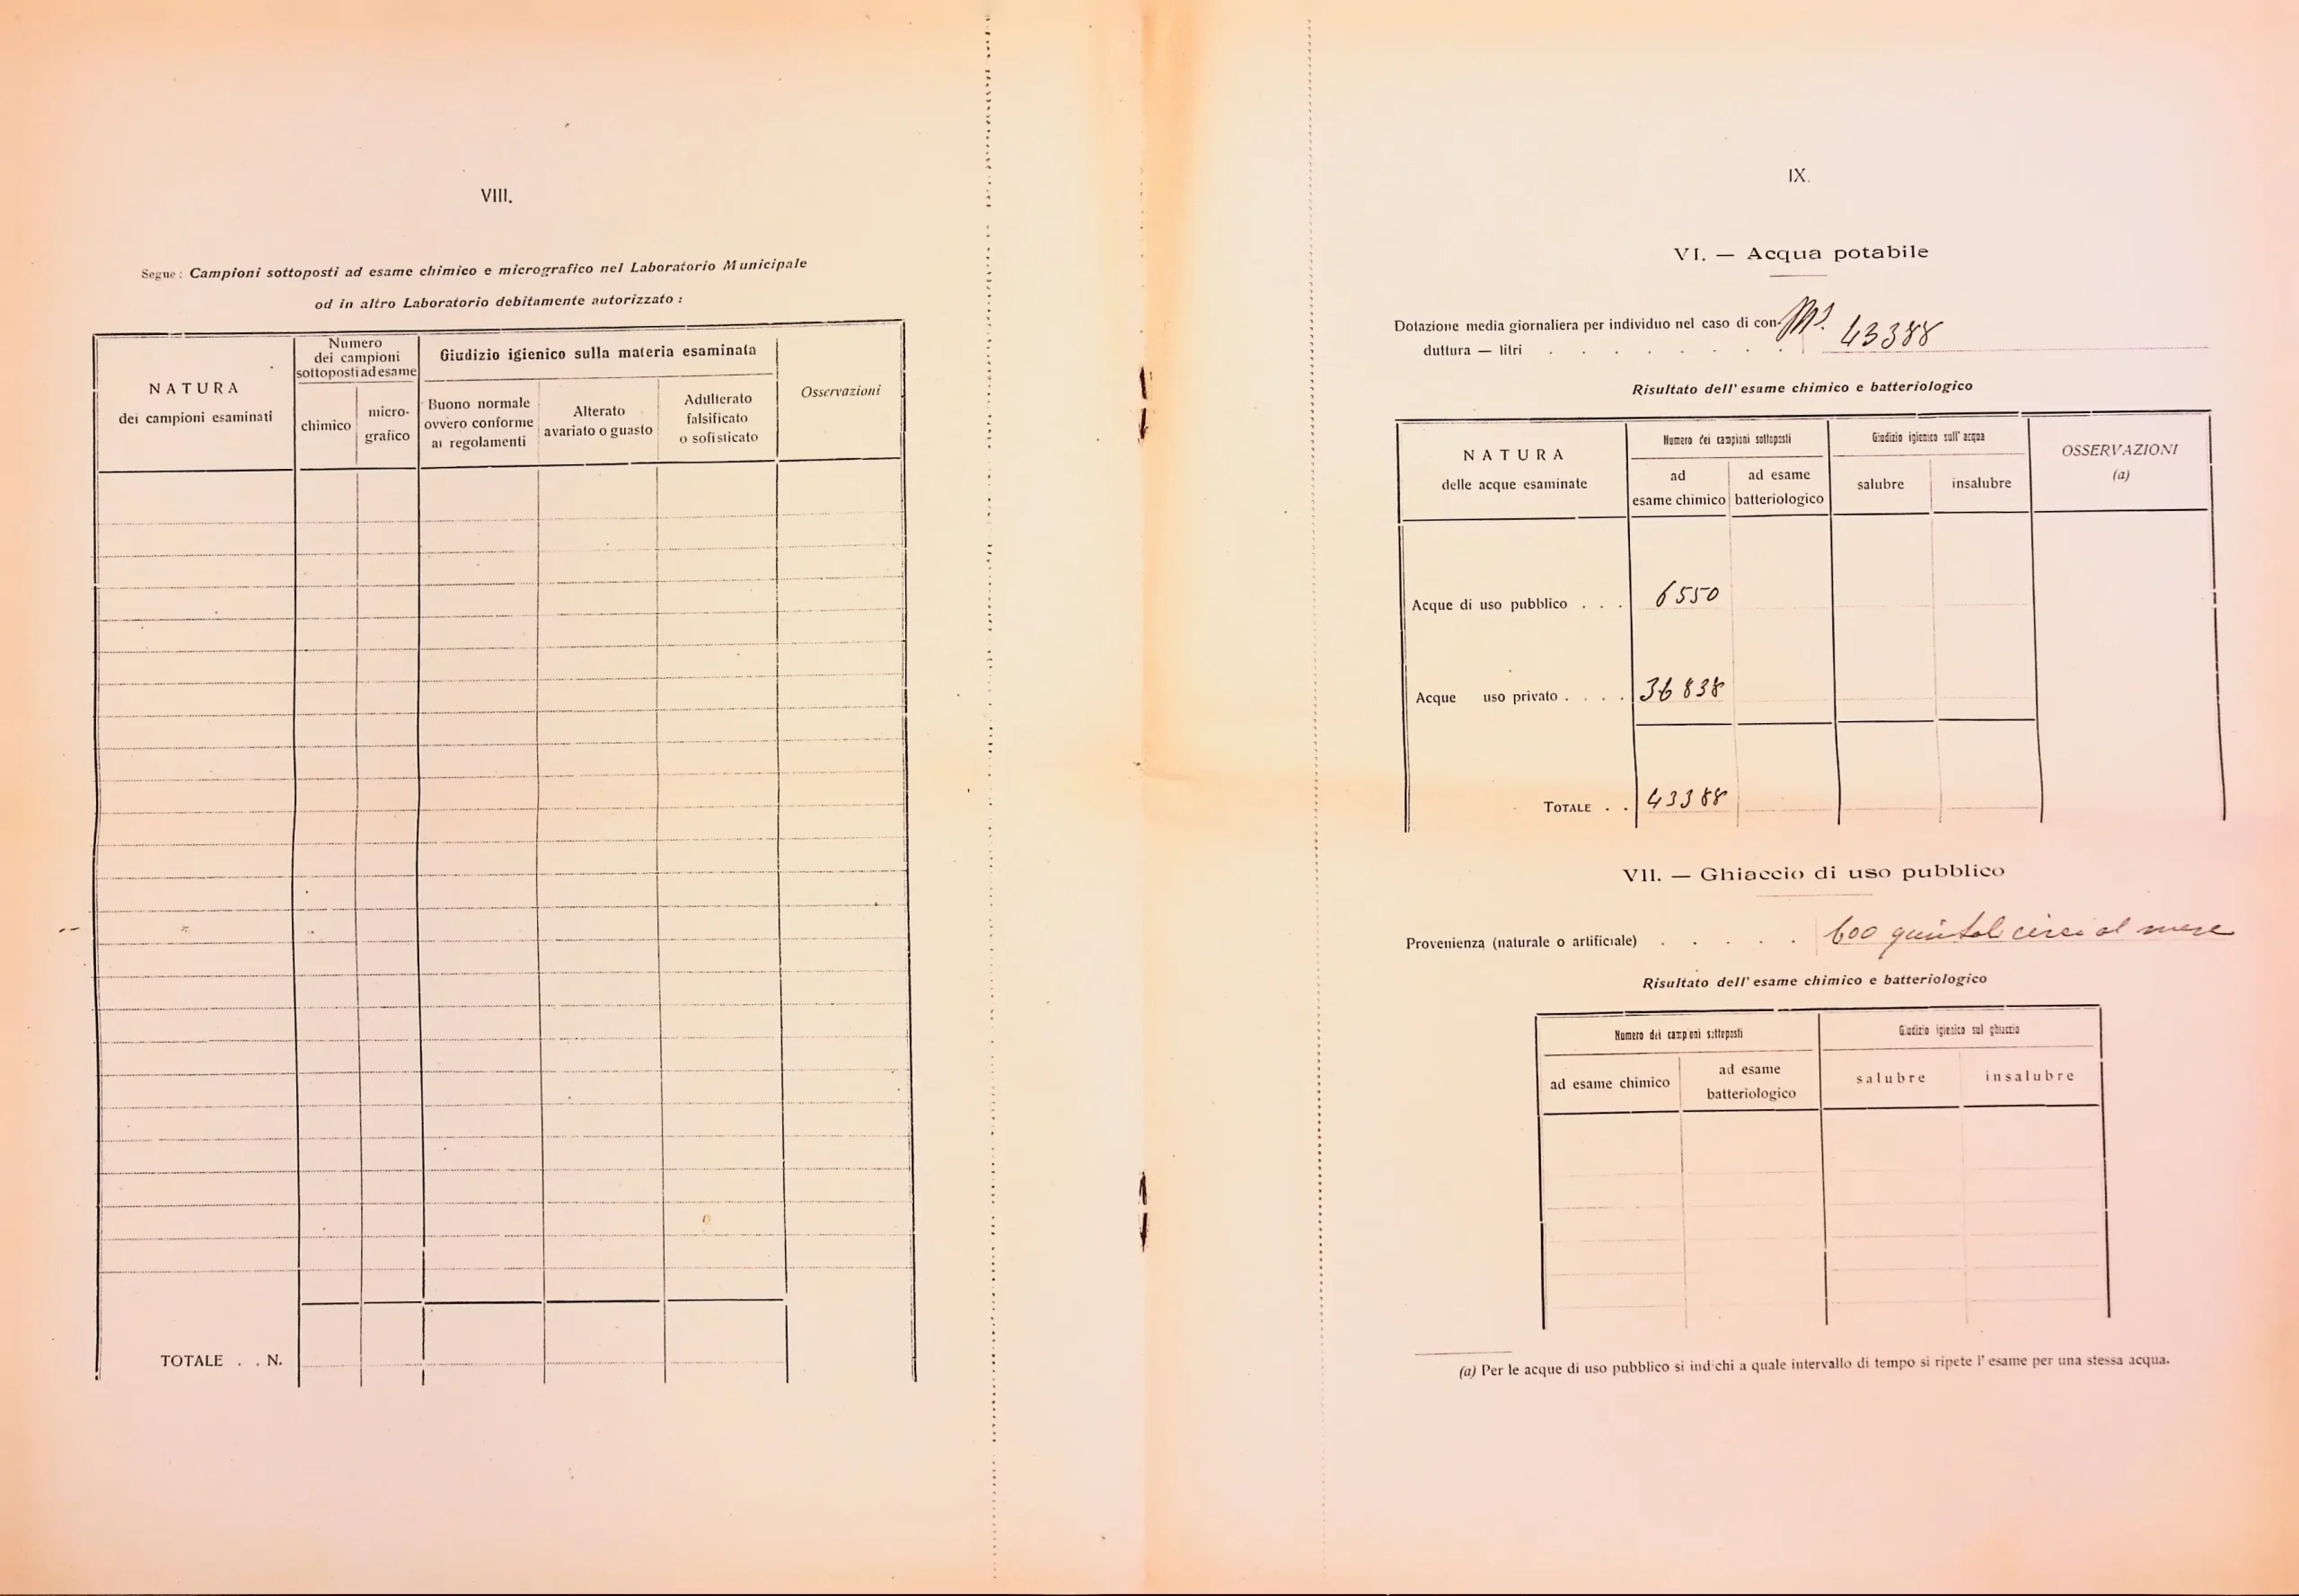 VIII.
Segue: Campioni sottoposti ad esame chimico e micrografico nel Laboratorio Municipale
od in altro Laboratorio debitamente autorizzato :
NATURA
dei campioni esaminati
Numero
dei campioni
sottoposti ad esame
chimico
micro-
grafico
Giudizio igienico sulla materia esaminata
Buono normale
ovvero conforme
ai regolamenti
Alterato
avariato o guasto
Adulterato
falsificato
o sofisticato
Osservazioni
TOTALE . . N.
IX.
VI. — Acqua potabile
Dotazione media giornaliera per individuo nel caso di con-
duttura — litri . . . . . . . . 43388
Risultato dell' esame chimico e batteriologico
NATURA
delle acque esaminate
Numero dei campioni sottoposti
ad
esame chimico
ad esame
batteriologico
Giudizio igienico sull' acqua
salubre
insalubre
OSSERVAZIONI
(a)
Acque di uso pubblico . . . 6550
Acque uso privato . . . . 36838
TOTALE . . 43388
VII. — Ghiaccio di uso pubblico
Provenienza (naturale o artificiale) . . . . . 600 quintali circa al mese
Risultato dell' esame chimico e batteriologico
Numero dei campioni sottoposti
ad esame chimico
ad esame
batteriologico
Giudizio igienico sul ghiaccio
salubre
insalubre
(a) Per le acque di uso pubblico si indichi a quale intervallo di tempo si ripete l' esame per una stessa acqua.